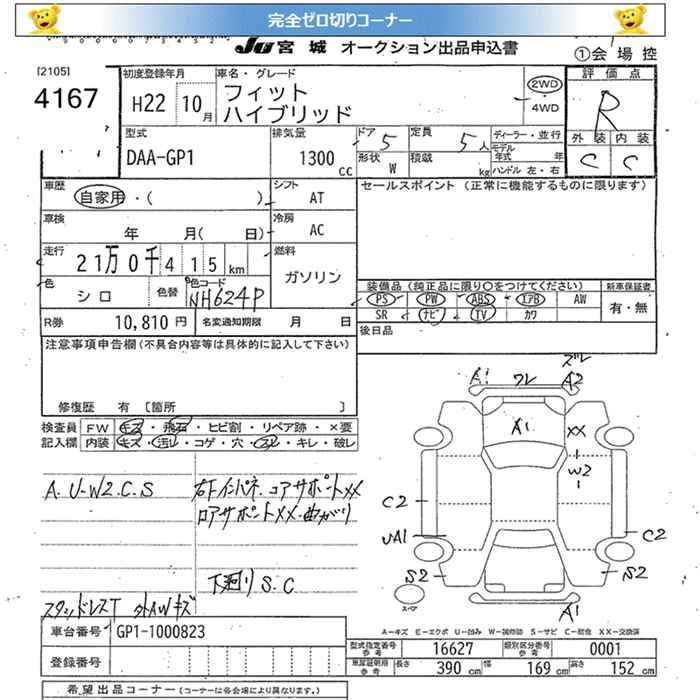 完全ゼロ切りコーナー
JU 宮城 オークション出品申込書
①会場控
[2105]
4167
初度登録年月
H22 10月
車名・グレード
フィット
ハイブリッド
2WD
4WD
評価点
R
外装 内装
C C
型式
DAA-GP1
排気量
1300 cc
ドア 5
定員 5人
ディーラー・並行
形状 W
積載 kg
モデル年式 年
ハンドル 左・右
車歴
自家用・( )
シフト
AT
セールスポイント (正常に機能するものに限ります)
車検
年 月( 日)
冷房
AC
走行
21万0千415 km
燃料
ガソリン
色
シロ
色替
色コード
NH624P
装備品 (純正品に限り○をつけてください)
PS PW ABS エアB AW
SR ナビ TV カワ
新車保証書
有・無
R券
10,810 円
名変通知期限 月 日
後日品
注意事項申告欄 (不具合内容等は具体的に記入して下さい)
修復歴 有 [箇所 ]
検査員
記入欄
FW キズ・飛石・ヒビ割・リペア跡・×要
内装 キズ・汚レ・コゲ・穴・スレ・キレ・破レ
A.U-W2.C.S
右下インパネ.コアサポートXX
ロアサポートXX.曲がり
下廻りS.C
スタッドレスT 外AWキズ
A1 ワレ ズレ A2
A1 XX
W2
C2
UA1
C2
S2
S2
A1
スペア
A-キズ E-エクボ U-凹み W-補修跡 S-サビ C-腐蝕 XX-交換済
車台番号
GP1-1000823
登録番号
型式指定番号 参考 16627
類別区分番号 参考 0001
車庫証明用 参考 長さ 390 cm 幅 169 cm 高さ 152 cm
希望出品コーナー (コーナーは各会場により異なります。)